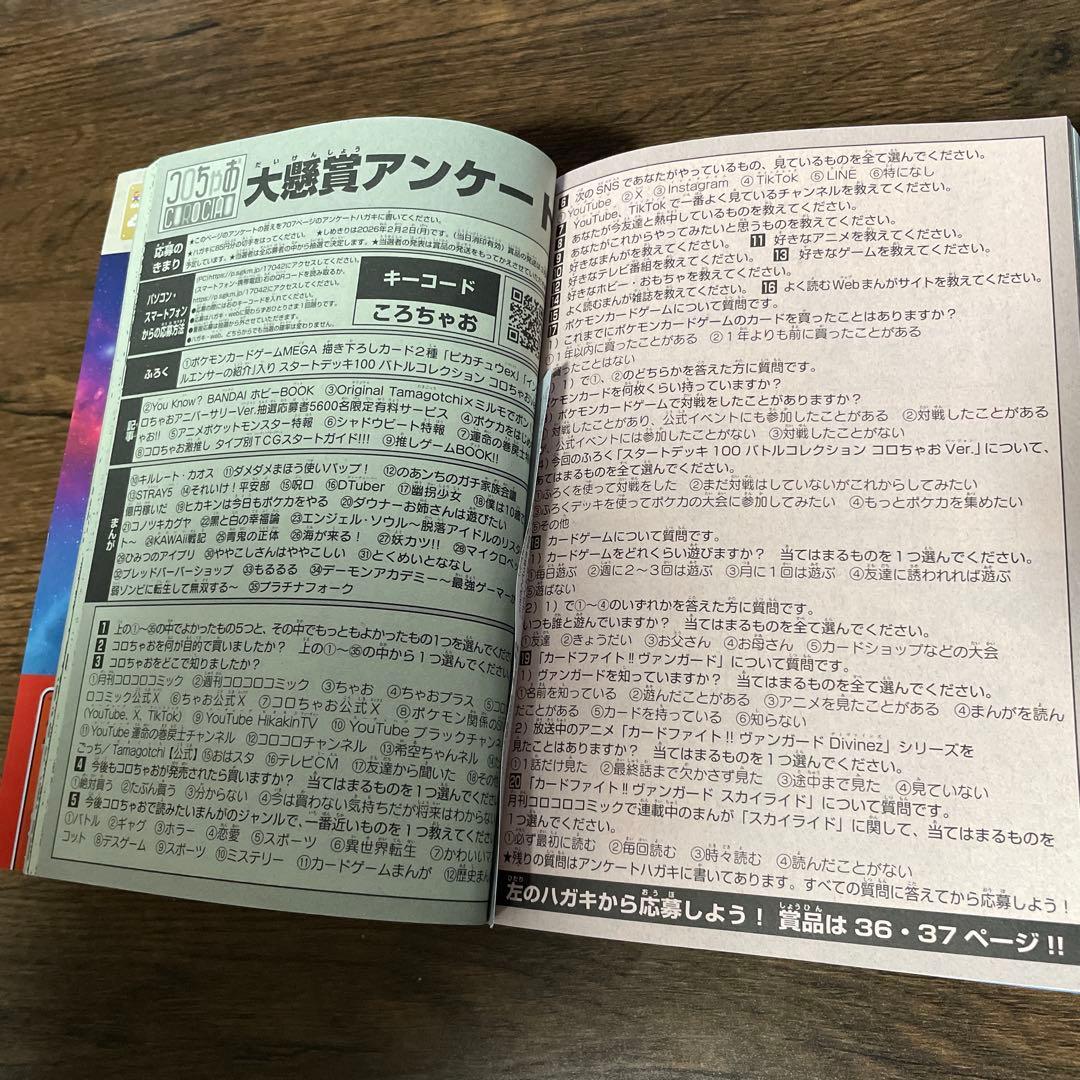 コロちゃお
COROCIAO
だいけんしょう
大懸賞アンケート
応募のきまり
★このページのアンケートの答えを707ページのアンケートハガキに書いてください。
★ハガキに85円分の切手をはってください。 ★しめきりは2026年2月2日(月)です。(当日消印有効)
★当選者は全応募者の中から抽選で決定します。 ★当選者の発表は賞品の発送をもってかえさせてい
予定しています。
パソコン・スマートフォンからの応募方法
(PC)https://p.sgkm.jp/17042にアクセスしてください。
(スマートフォン・携帯電話)右のQRコードを読み取るか、
https://p.sgkm.jp/17042にアクセスしてください。
●応募の際には右のキーコードを入れてください。
●応募はハガキ・webに関わらずおひとりさま1回限りです。
●重複応募は抽選から外させていただきます。
●ハガキ・web、どちらからでも当選の確率は変わりません。
キーコード
ころちゃお
ふろく
①ポケモンカードゲームMEGA 描き下ろしカード2種「ピカチュウex」「イ
ルエンサーの紹介」入り スタートデッキ100 バトルコレクション コロちゃお
②You Know? BANDAI ホビーBOOK ③Original Tamagotchi×ミルモでポン
ロちゃおアニバーサリーVer.抽選応募者5600名限定有料サービス ④ポケカをはじめ
ちゃお!! ⑤アニメポケットモンスター特報 ⑥シャドウビート特報 ⑦運命の巻戻士
⑧コロちゃお激推し タイプ別TCGスタートガイド!!! ⑨推しゲームBOOK!!
まんが
⑩キルレート・カオス ⑪ダメダメまほう使いパップ! ⑫のあンちのガチ家族会議
⑬STRAY5 ⑭それいけ!平安部 ⑮呪口 ⑯DTuber ⑰幽拐少女 ⑱僕は10歳で
億円稼いだ ⑲ヒカキンは今日もポケカをやる ⑳ダウナーお姉さんは遊びたい
㉑コノツキカグヤ ㉒黒と白の幸福論 ㉓エンジェル・ソウル~脱落アイドルのリスタ
ト~ ㉔KAWAii戦記 ㉕青鬼の正体 ㉖海が来る! ㉗妖カツ!! ㉘マイクロペッ
㉙ひみつのアイプリ ㉚ややこしさんはややこしい ㉛とくめいとななし
㉜ブレッドバーバーショップ ㉝もるるる ㉞デーモンアカデミー~最強ゲーマーが
弱ゾンビに転生して無双する~ ㉟プラチナフォーク
1 上の①~㉟の中でよかったもの5つと、その中でもっともよかったもの1つを選んで
2 コロちゃおを何が目的で買いましたか? 上の①~㉟の中から1つ選んでください。
3 コロちゃおをどこで知りましたか?
①月刊コロコロコミック ②週刊コロコロコミック ③ちゃお ④ちゃおプラス ⑤コロ
ロコミック公式X ⑥ちゃお公式X ⑦コロちゃお公式X ⑧ポケモン関係の
(YouTube、X、TikTok) ⑨YouTube HikakinTV ⑩YouTube ブラックチャン
⑪YouTube 運命の巻戻士チャンネル ⑫コロコロチャンネル ⑬希空ちゃんネル
ごっち/Tamagotchi【公式】 ⑮おはスタ ⑯テレビCM ⑰友達から聞いた ⑱その
4 今後もコロちゃおが発売されたら買いますか? 当てはまるものを1つ選んでください
①絶対買う ②たぶん買う ③分からない ④今は買わない気持ちだが将来はわからない
5 今後コロちゃおで読みたいまんがのジャンルで、一番近いものを1つ教えてください
①バトル ②ギャグ ③ホラー ④恋愛 ⑤スポーツ ⑥異世界転生 ⑦かわいいマ
コット ⑧デスゲーム ⑨スポーツ ⑩ミステリー ⑪カードゲームまんが ⑫歴史まん
6 次のSNSであなたがやっているもの、見ているものを全て選んでください。
YouTube ②X ③Instagram ④TikTok ⑤LINE ⑥特になし
7 YouTube、TikTokで一番よく見ているチャンネルを教えてください。
8 あなたが今友達と熱中しているものを教えてください。
9 あなたがこれからやってみたいと思うものを教えてください。
10 好きなまんがを教えてください。 11 好きなアニメを教えてください。
12 好きなテレビ番組を教えてください。 13 好きなゲームを教えてください。
14 好きなホビー・おもちゃを教えてください。
15 よく読むまんが雑誌を教えてください。 16 よく読むWebまんがサイトを教えてください。
17 ポケモンカードゲームについて質問です。
1)これまでにポケモンカードゲームのカードを買ったことはありますか?
①1年以内に買ったことがある ②1年よりも前に買ったことがある
ったことはない
1)で①、②のどちらかを答えた方に質問です。
モンカードを何枚くらい持っていますか?
ポケモンカードゲームで対戦をしたことがありますか?
対戦したことがあり、公式イベントにも参加したことがある ②対戦したことがある
公式イベントには参加したことがない ③対戦したことがない
4)今回のふろく「スタートデッキ100 バトルコレクション コロちゃおVer.」について、
あてはまるものを全て選んでください。
①ふろくを使って対戦をした ②まだ対戦はしていないがこれからしてみたい
③ふろくデッキを使ってポケカの大会に参加してみたい ④もっとポケカを集めたい
⑤その他
18 カードゲームについて質問です。
1)カードゲームをどれくらい遊びますか? 当てはまるものを1つ選んでください。
①毎日遊ぶ ②週に2~3回は遊ぶ ③月に1回は遊ぶ ④友達に誘われれば遊ぶ
⑤遊ばない
2)1)で①~④のいずれかを答えた方に質問です。
いつも誰と遊んでいますか? 当てはまるものを全て選んでください。
①友達 ②きょうだい ③お父さん ④お母さん ⑤カードショップなどの大会
19 「カードファイト!! ヴァンガード」について質問です。
1)ヴァンガードを知っていますか? 当てはまるものを全て選んでください。
①名前を知っている ②遊んだことがある ③アニメを見たことがある ④まんがを読ん
だことがある ⑤カードを持っている ⑥知らない
2)放送中のアニメ「カードファイト!! ヴァンガード Divinez」シリーズを
見たことはありますか? 当てはまるものを1つ選んでください。
①1話だけ見た ②最終話まで欠かさず見た ③途中まで見た ④見ていない
20 「カードファイト!! ヴァンガード スカイライド」について質問です。
月刊コロコロコミックで連載中のまんが「スカイライド」に関して、当てはまるものを
1つ選んでください。
①必ず最初に読む ②毎回読む ③時々読む ④読んだことがない
★残りの質問はアンケートハガキに書いてあります。すべての質問に答えてから応募しよう!
左のハガキから応募しよう! 賞品は36・37ページ!!